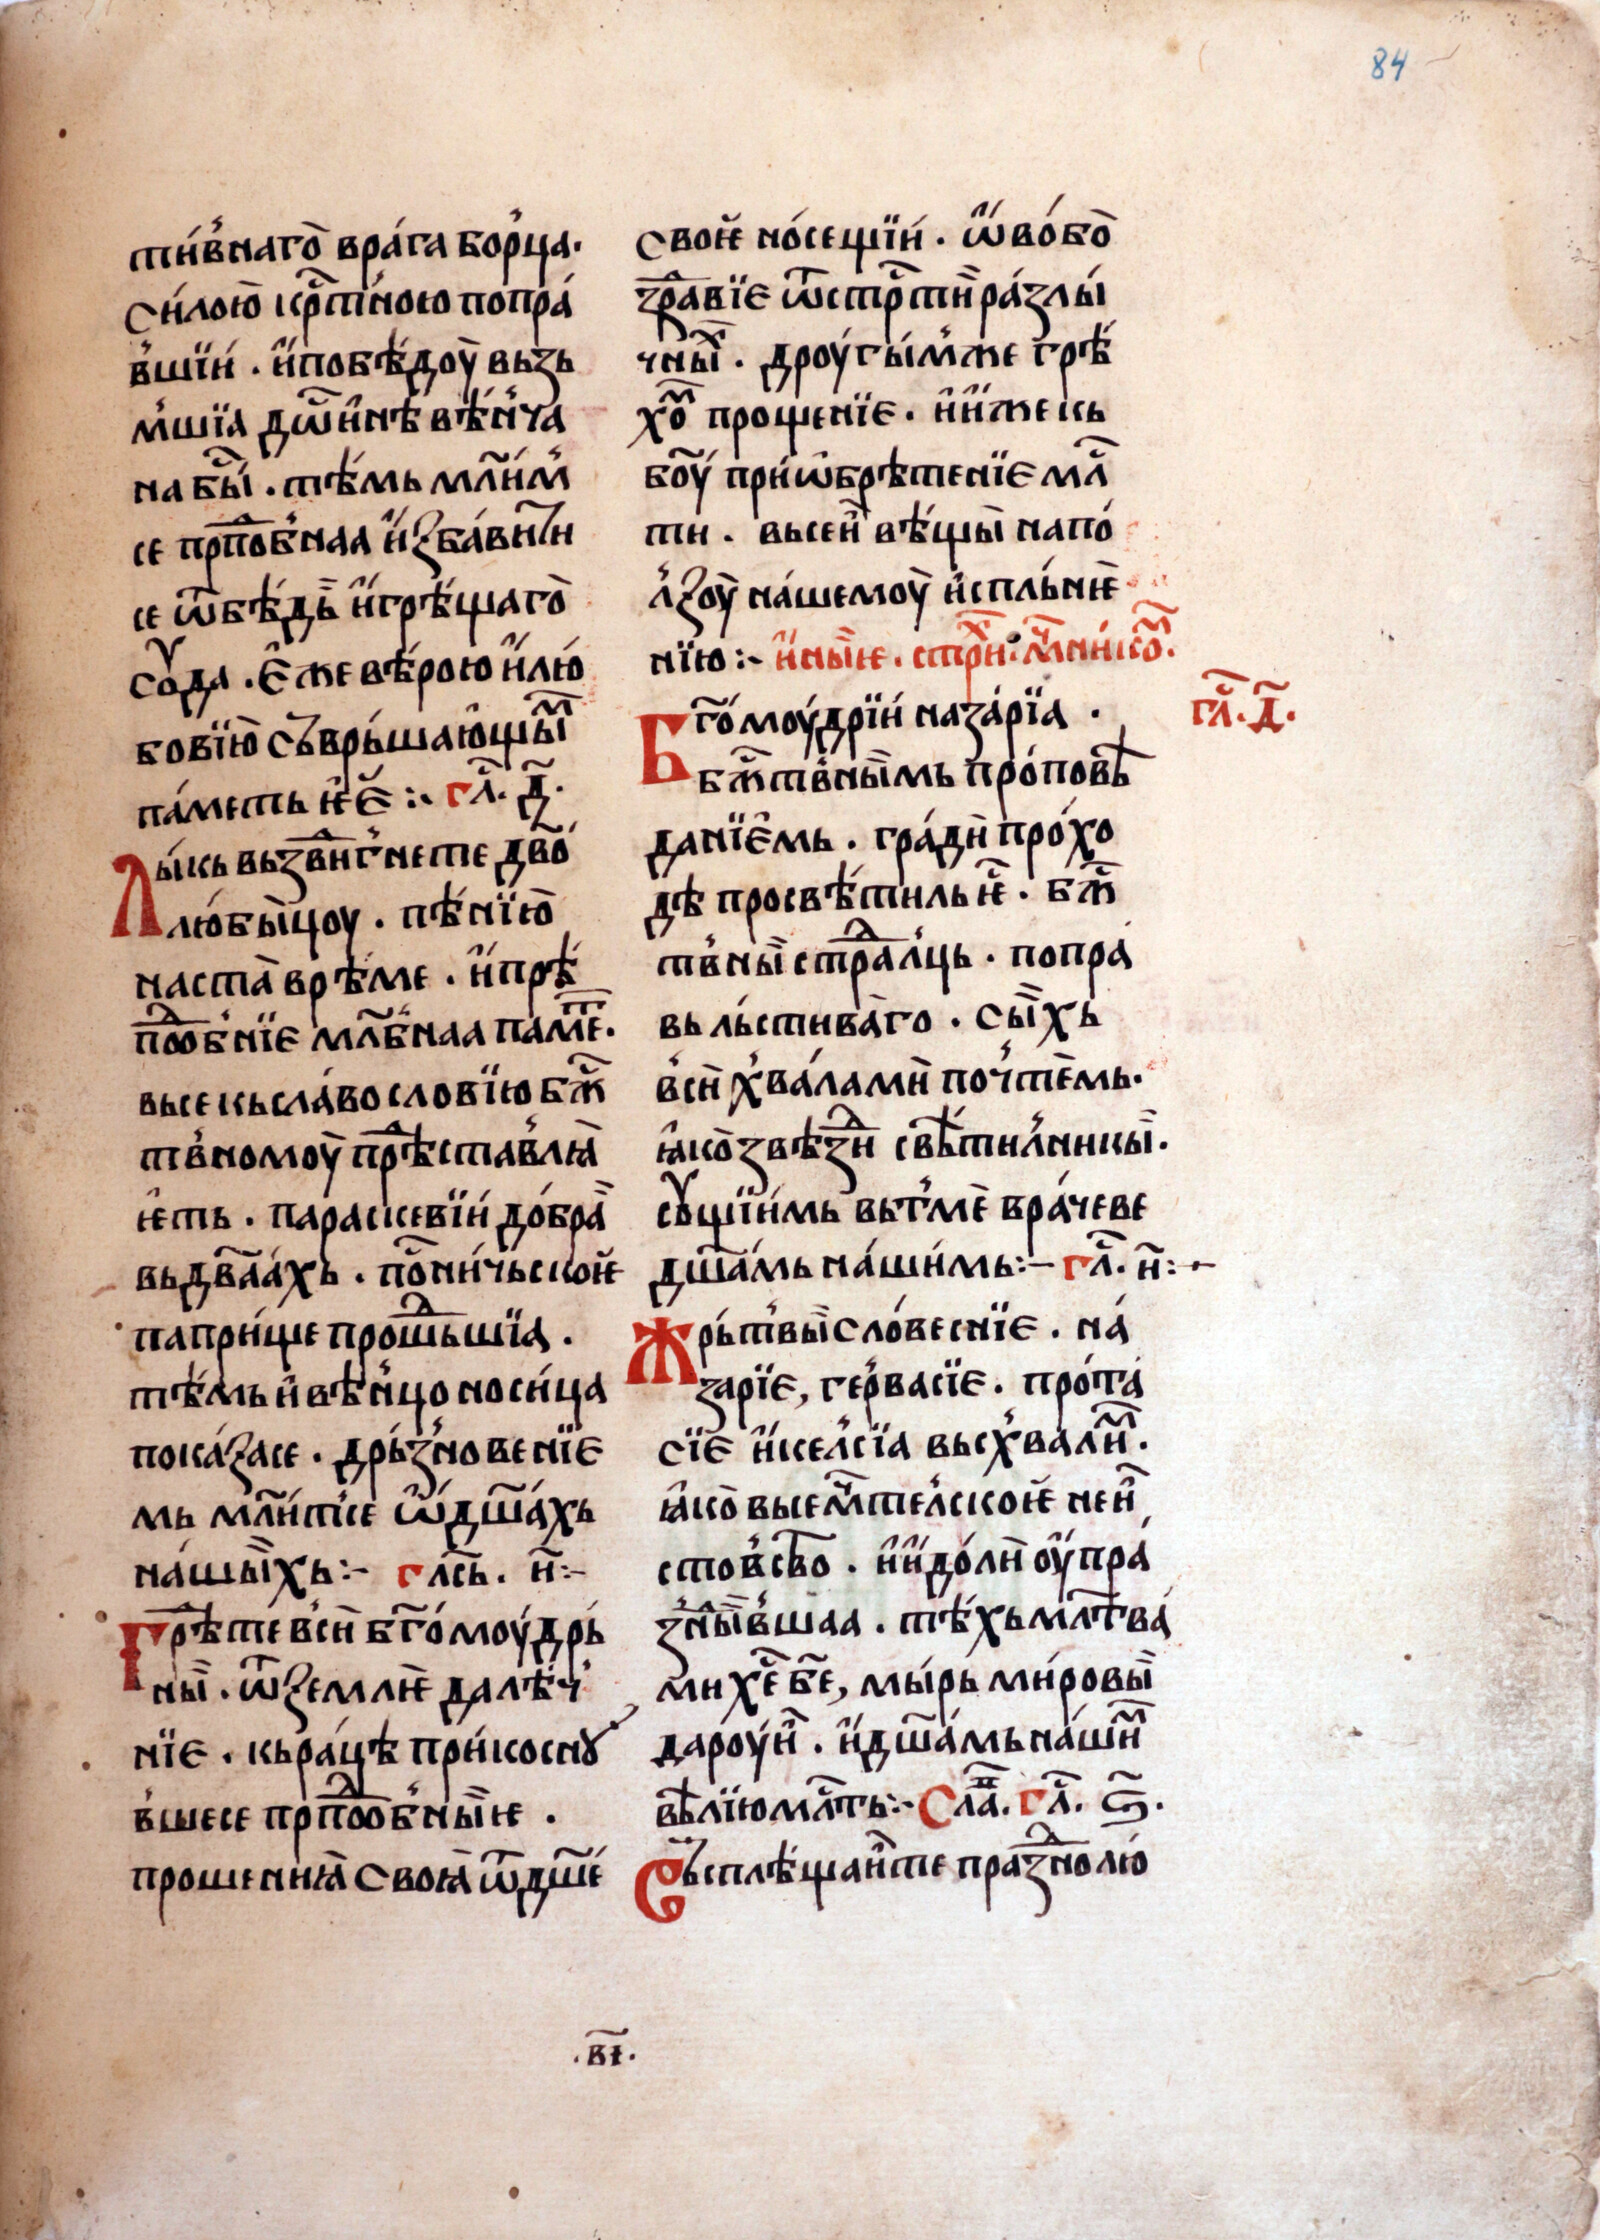 84
ти́в̾наго̀ вра́га бор̾ца·
си́лою̀ крⷭ҇ти́ною попра́
в̾шїи́ · и҆побѣ́доу̀ вьзь
м̾шїа дш҃и́нѣ вѣ́н̾ча
на бы́ⷭ҇ · тѣ́мь мл҃и́м̾
се прⷣпо́б̾наа и҆ꙁба́вити
се ѿбѣ́дь̀ и҆грѣ́щаго̀
сꙋда · є҆же вѣ́рою и҆лю́
бовїю̀ съврь́шаю́щыⷨ
па́меть ѥ҆є̀ :· гл҃. д҃·
Лы́кь вьꙁⷣви́г̾нете дв҃о́
лю́бы̀цоу · пѣ́нїю̀
наста̀ врѣ́ме · и҆прѣ́
поⷣоб̾нїє млⷭ҇б̾наа памеⷮ·
вьсе кьсла́вословїю бжⷭ҇
тв̾номоу̀ прⷣѣстав̾лꙗ̀
ѥ҆ть · параскевїи́ до́бра̀
вьдв҃а́ахь · пⷭ҇они́чьскоѥ
папри́ще прошⷣьшїа ·
тѣ́мь и҆вѣ́н̾цоноси́ца
пока́ꙁасе · дрь́ꙁ̾новенїє
мь мл҃и́т̾се ѡ҆дш҃а́хь
на́шы̀хь:– гла́сь · и҃:–
Грⷣѣ́тев̾сѝ бг҃о́моу́дрь́
ны̀ · ѿꙁемлѥ̀ далѣ́ч̾
нїє · кьра́цѣ при́коснꙋ
в̾шесе прпⷣооб̾ны̀ѥ ·
прошенїꙗ̀ своꙗ̀ ѿдш҃е́
своѥ̀ но́сещїи́ · ѡ҆во́бо̀
ꙁⷣравїє ѿстрⷭ҇ти̏ ра́ꙁлы́
чныⷯ · дроу́гы́м̾же грѣ́
хоⷨ прощенїє · и҆и҆же кь
бо҃у́ при́ѡбрѣ́тенїє млⷭ҇
ти · вьсеи̏ вѣ́щы̀ напо́
л̾ꙁоу̀ на́шемоу̀ и҆спль́нѥ̀
нїю:– и҆ны̀ѥ · стрⷯи· мⷱ҇ни́коⷨ·
гл҃. д҃·
Бг҃о́моу́дрїи́ наза́рїа ·
бжⷭ҇тв̾ны̀мь про́повѣ̀
данїє҆мь · гра́ди̏ про́хо
дѣ просвѣ́тиль ѥ҆ⷭ · бжⷭ҇
тв̾ны̀ стрⷣал̾ць · попра́
вь льстива̀го · сы̏хь
в̾си̏ х̾ва́лами̏ поч̾те̏мь·
ꙗ҆ко̀ ꙁвѣꙁⷣи свѣ́тил̾никы̀·
сꙋщїи́мь вьт̾ме̏ вра́чеве
дш҃а́мь на́ши́мь:– гл҃. и҃:–
Жрь́т̾вы̀ сло́веснїє · на́
ꙁарїє, гер̾васїє · про́та́
сїє и҆кел̾сїа вьсх̾валиⷨ·
ꙗ҆ко̀ высемⷱ҇тел̾скоѥ̀ неи̏
стов̾сво̀ · и҆и҆до́ли̏ оу҆пра́
ꙁⷣны̀в̾шаа · тѣ́хьмлт҃ва́
ми хе҃ бе҃, мы́рь ми́ровы̀
дароу́и̏ · и҆дш҃а́мьна́шиⷨ
вѣ̀лїюмлⷭ҇ть:– Слаⷡ. гл҃. ѕ҃.
Съсплѣ́щаи̏те праꙁⷣнолю́
·вı҃·